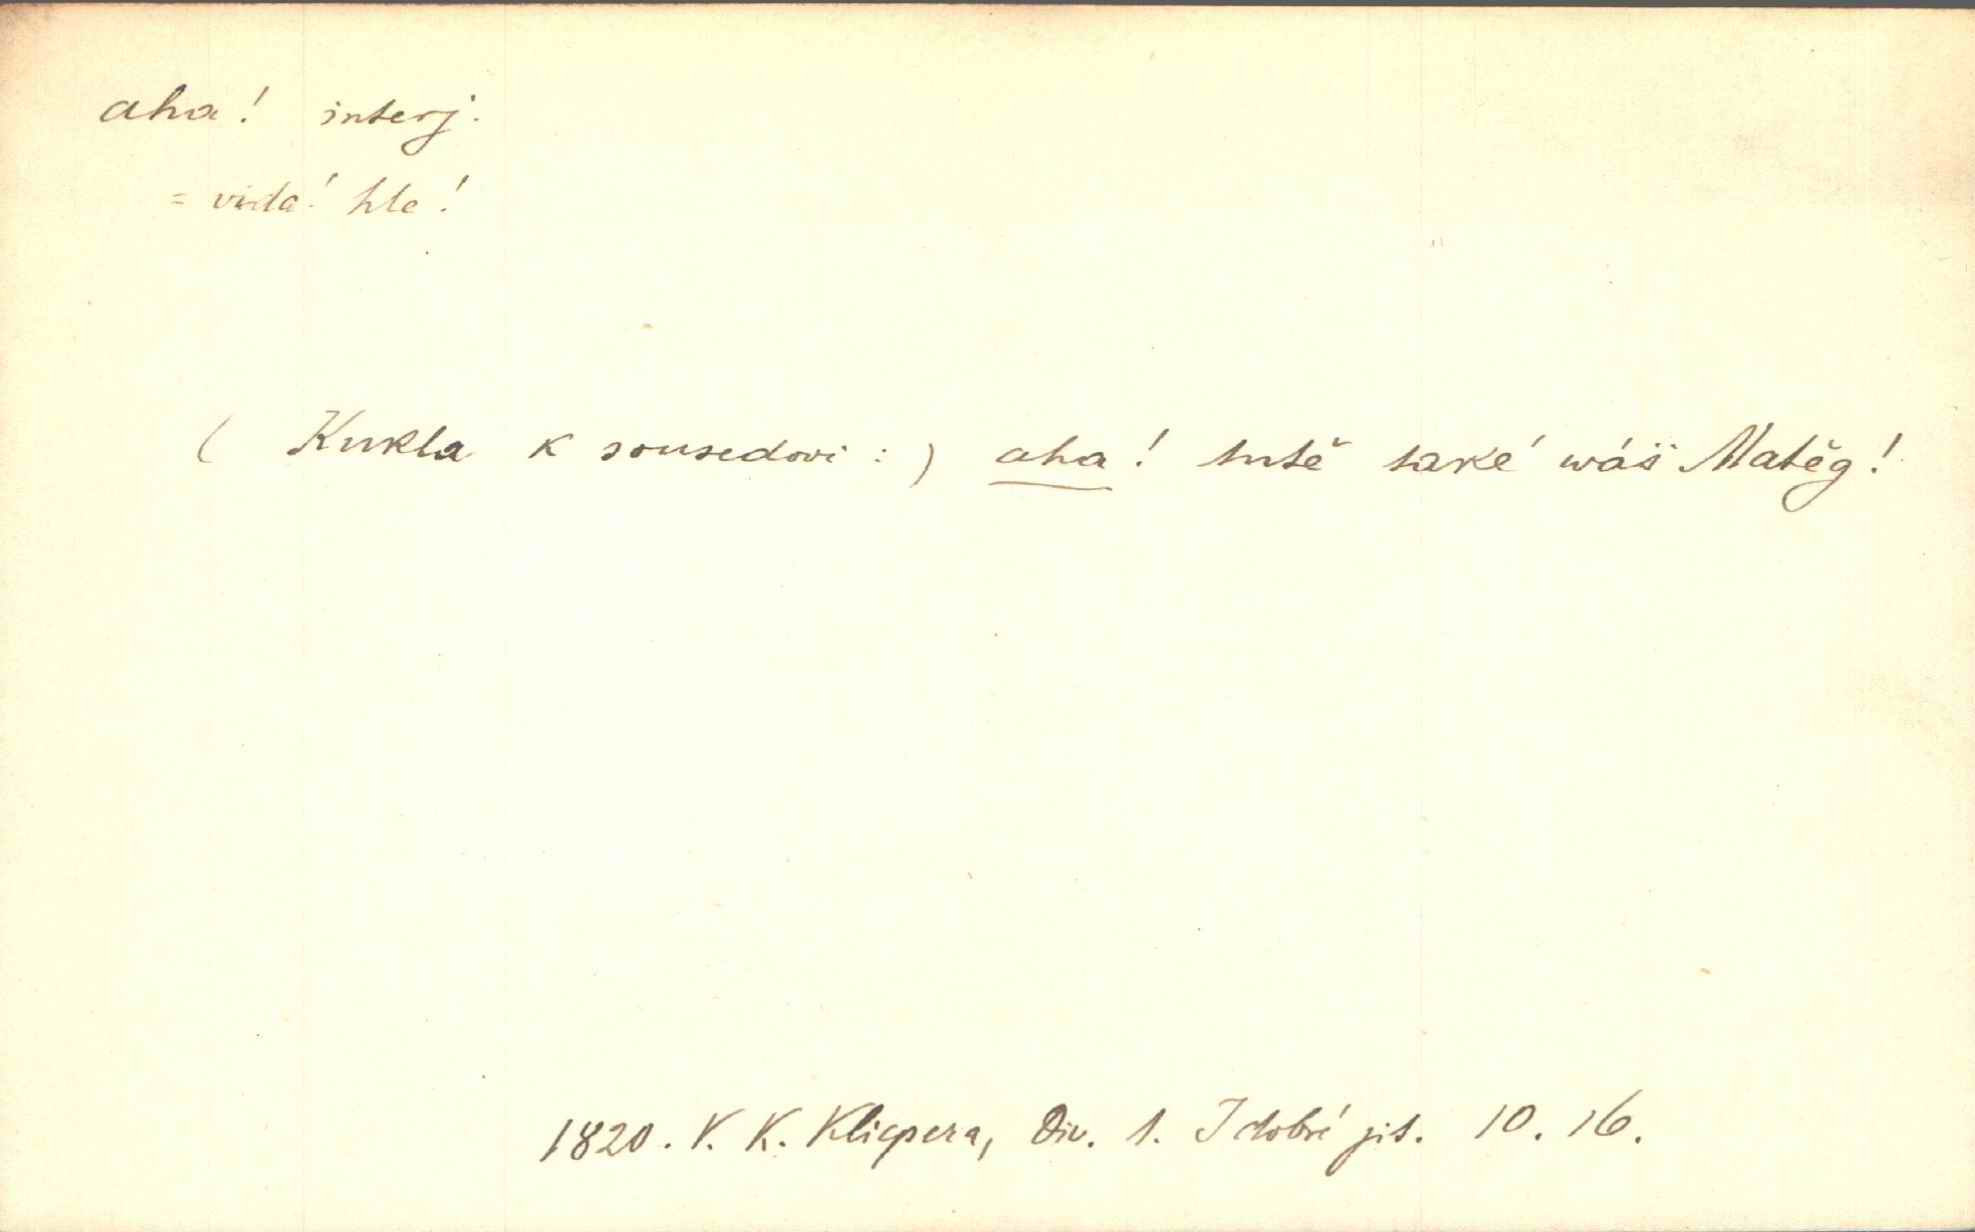 aha! interj.
= vida! hle!
( Kukla k sousedovi : ) aha! tutě také wáš Matěg!
1820. V. K. Klicpera, Div. 1. I dobré jit. 10. 16.